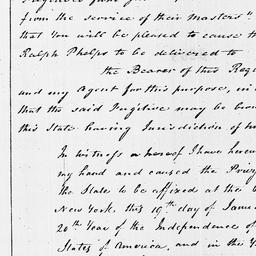 from the service of their masters"
that You will be pleased to cause t
Ralph Phelps to be delivered to
the Bearer of this Req
and my Agent for this purpose, in o
that the said Fugitive may be brou
this State having Jurisdiction of h
In witness whereof I have hereun
my hand and caused the Privy
the State to be affixed at the
New York, this 19th day of Janua
20th Year of the Independence of
States of America, and in the Y